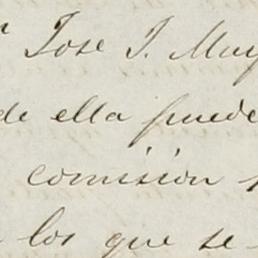 Jose J. May
de ella puede
comision
los que se